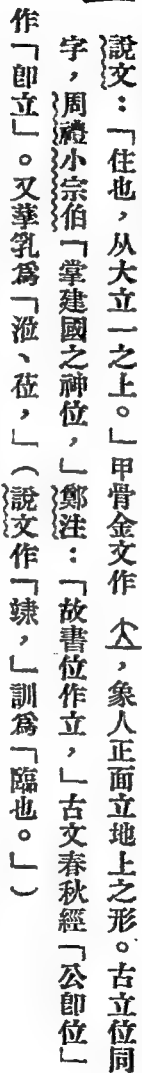 說文：「住也，从大立一之上。」甲骨金文作 ，象人正面立地上之形。古立位同
字，周禮小宗伯「掌建國之神位，」鄭注：「故書位作立，」古文春秋經「公卽位」
作「卽立」。又孳乳爲「涖、莅，」（說文作「𥩳，」訓爲「臨也。」）